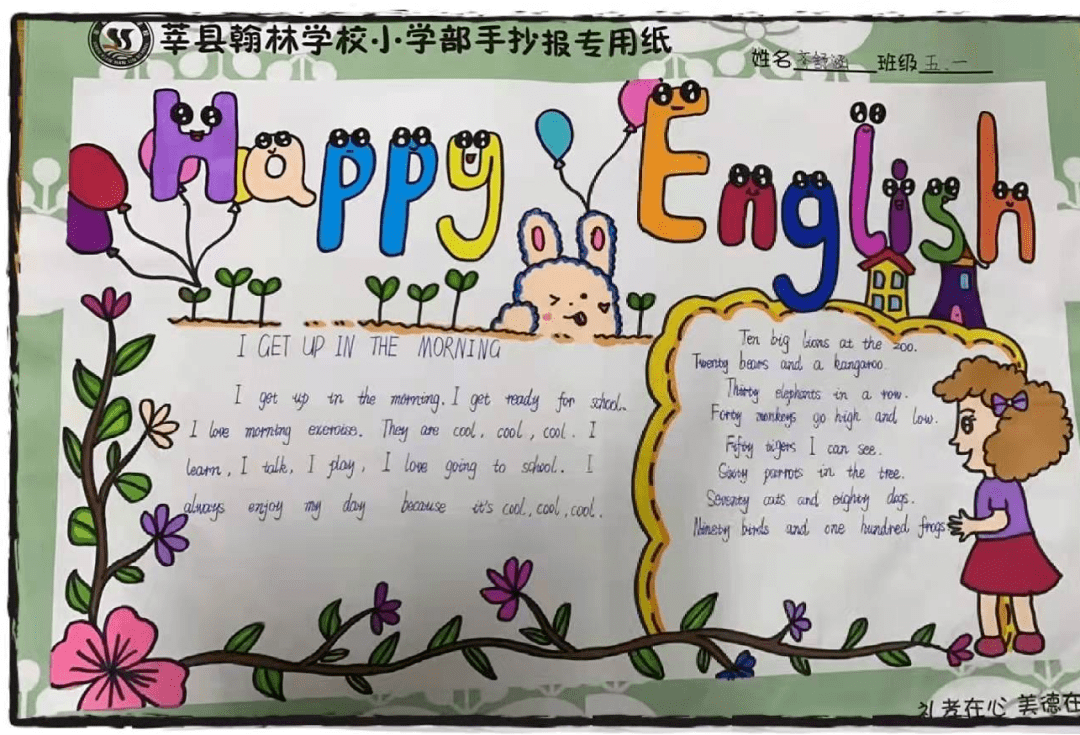 莘县翰林学校小学部手抄报专用纸
姓名 齐舒涵 班级 五.一
Happy English
I GET UP IN THE MORNING
I get up in the morning. I get ready for school.
I love morning exercise. They are cool, cool, cool. I
learn, I talk, I play, I love going to school. I
always enjoy my day because it's cool, cool, cool.
Ten big lions at the zoo.
Twenty bears and a kangaroo.
Thirty elephants in a row.
Forty monkeys go high and low.
Fifty tigers I can see.
Sixty parrots in the tree.
Seventy cats and eighty dogs.
Ninety birds and one hundred frogs
礼孝在心 美德在